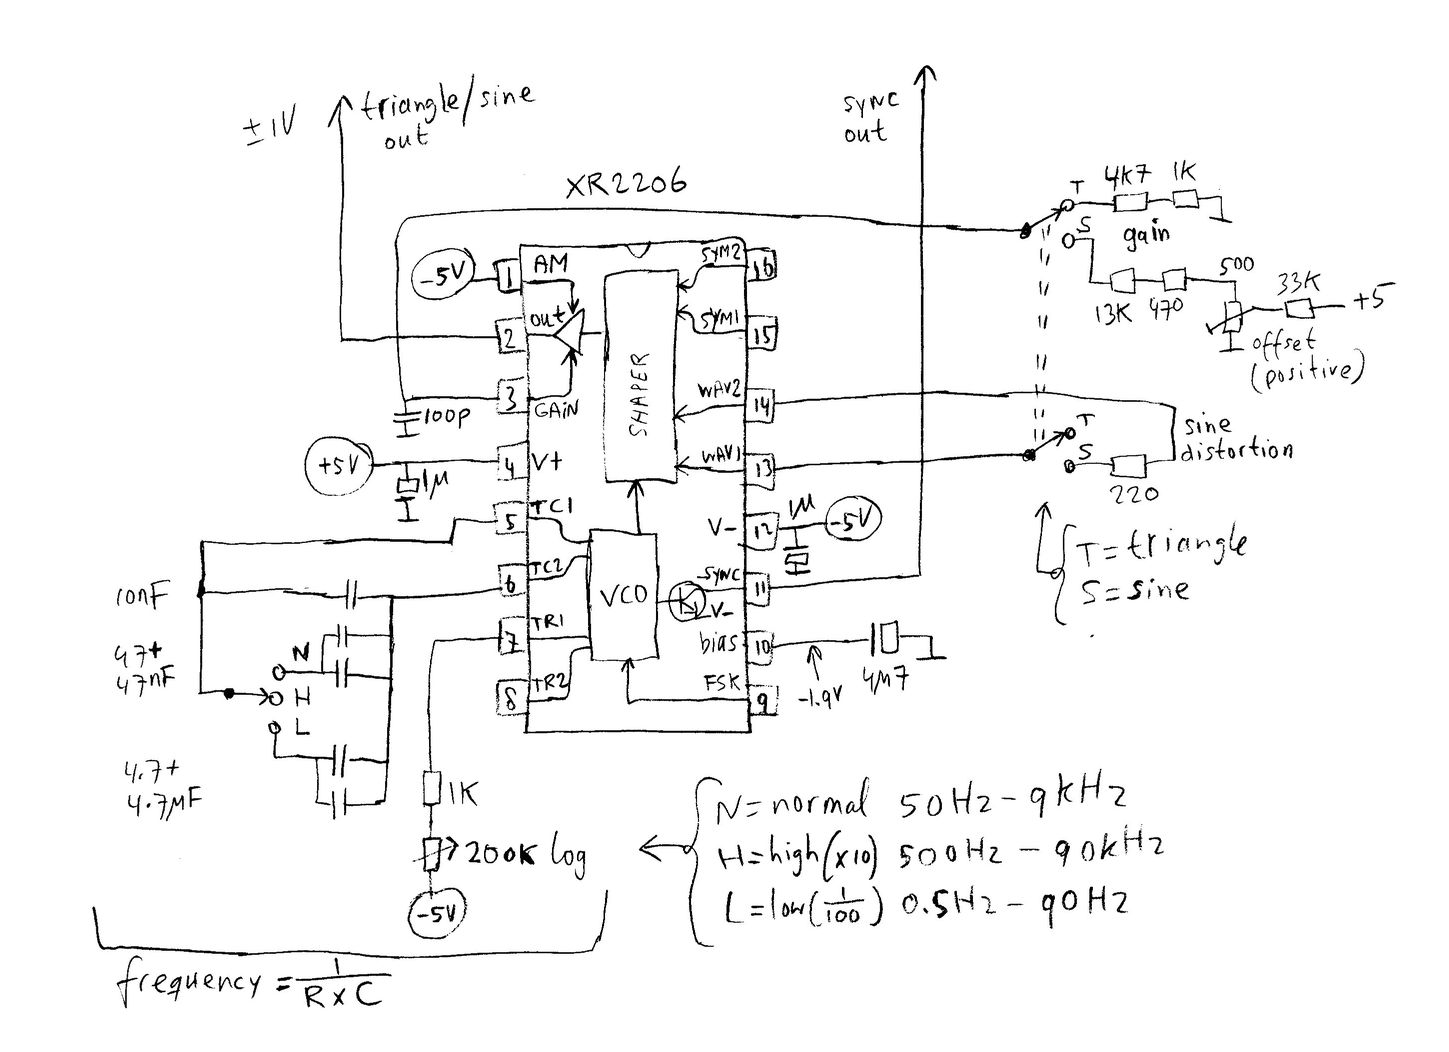 ±1V
triangle/sine
out
sync
out
XR2206
T
4K7
1K
S
gain
13K
470
500
33K
+5
offset
(positive)
-5V
1
AM
SYM2
16
2
out
SYM1
15
SHAPER
3
GAIN
WAV2
14
100p
T
S
sine
distortion
220
+5V
4
V+
WAV1
13
1µ
1µ
5
TC1
V-
12
-5V
T=triangle
S=sine
10nF
6
TC2
VCO
SYNC
11
V-
47+
47nF
N
H
L
7
TR1
bias
10
-1.9V
4µ7
8
TR2
FSK
9
4.7+
4.7µF
1K
200K log
-5V
N=normal 50Hz-9kHz
H=high(x10) 500Hz - 90kHz
L=low(1/100) 0.5Hz - 90Hz
frequency = 1/RxC